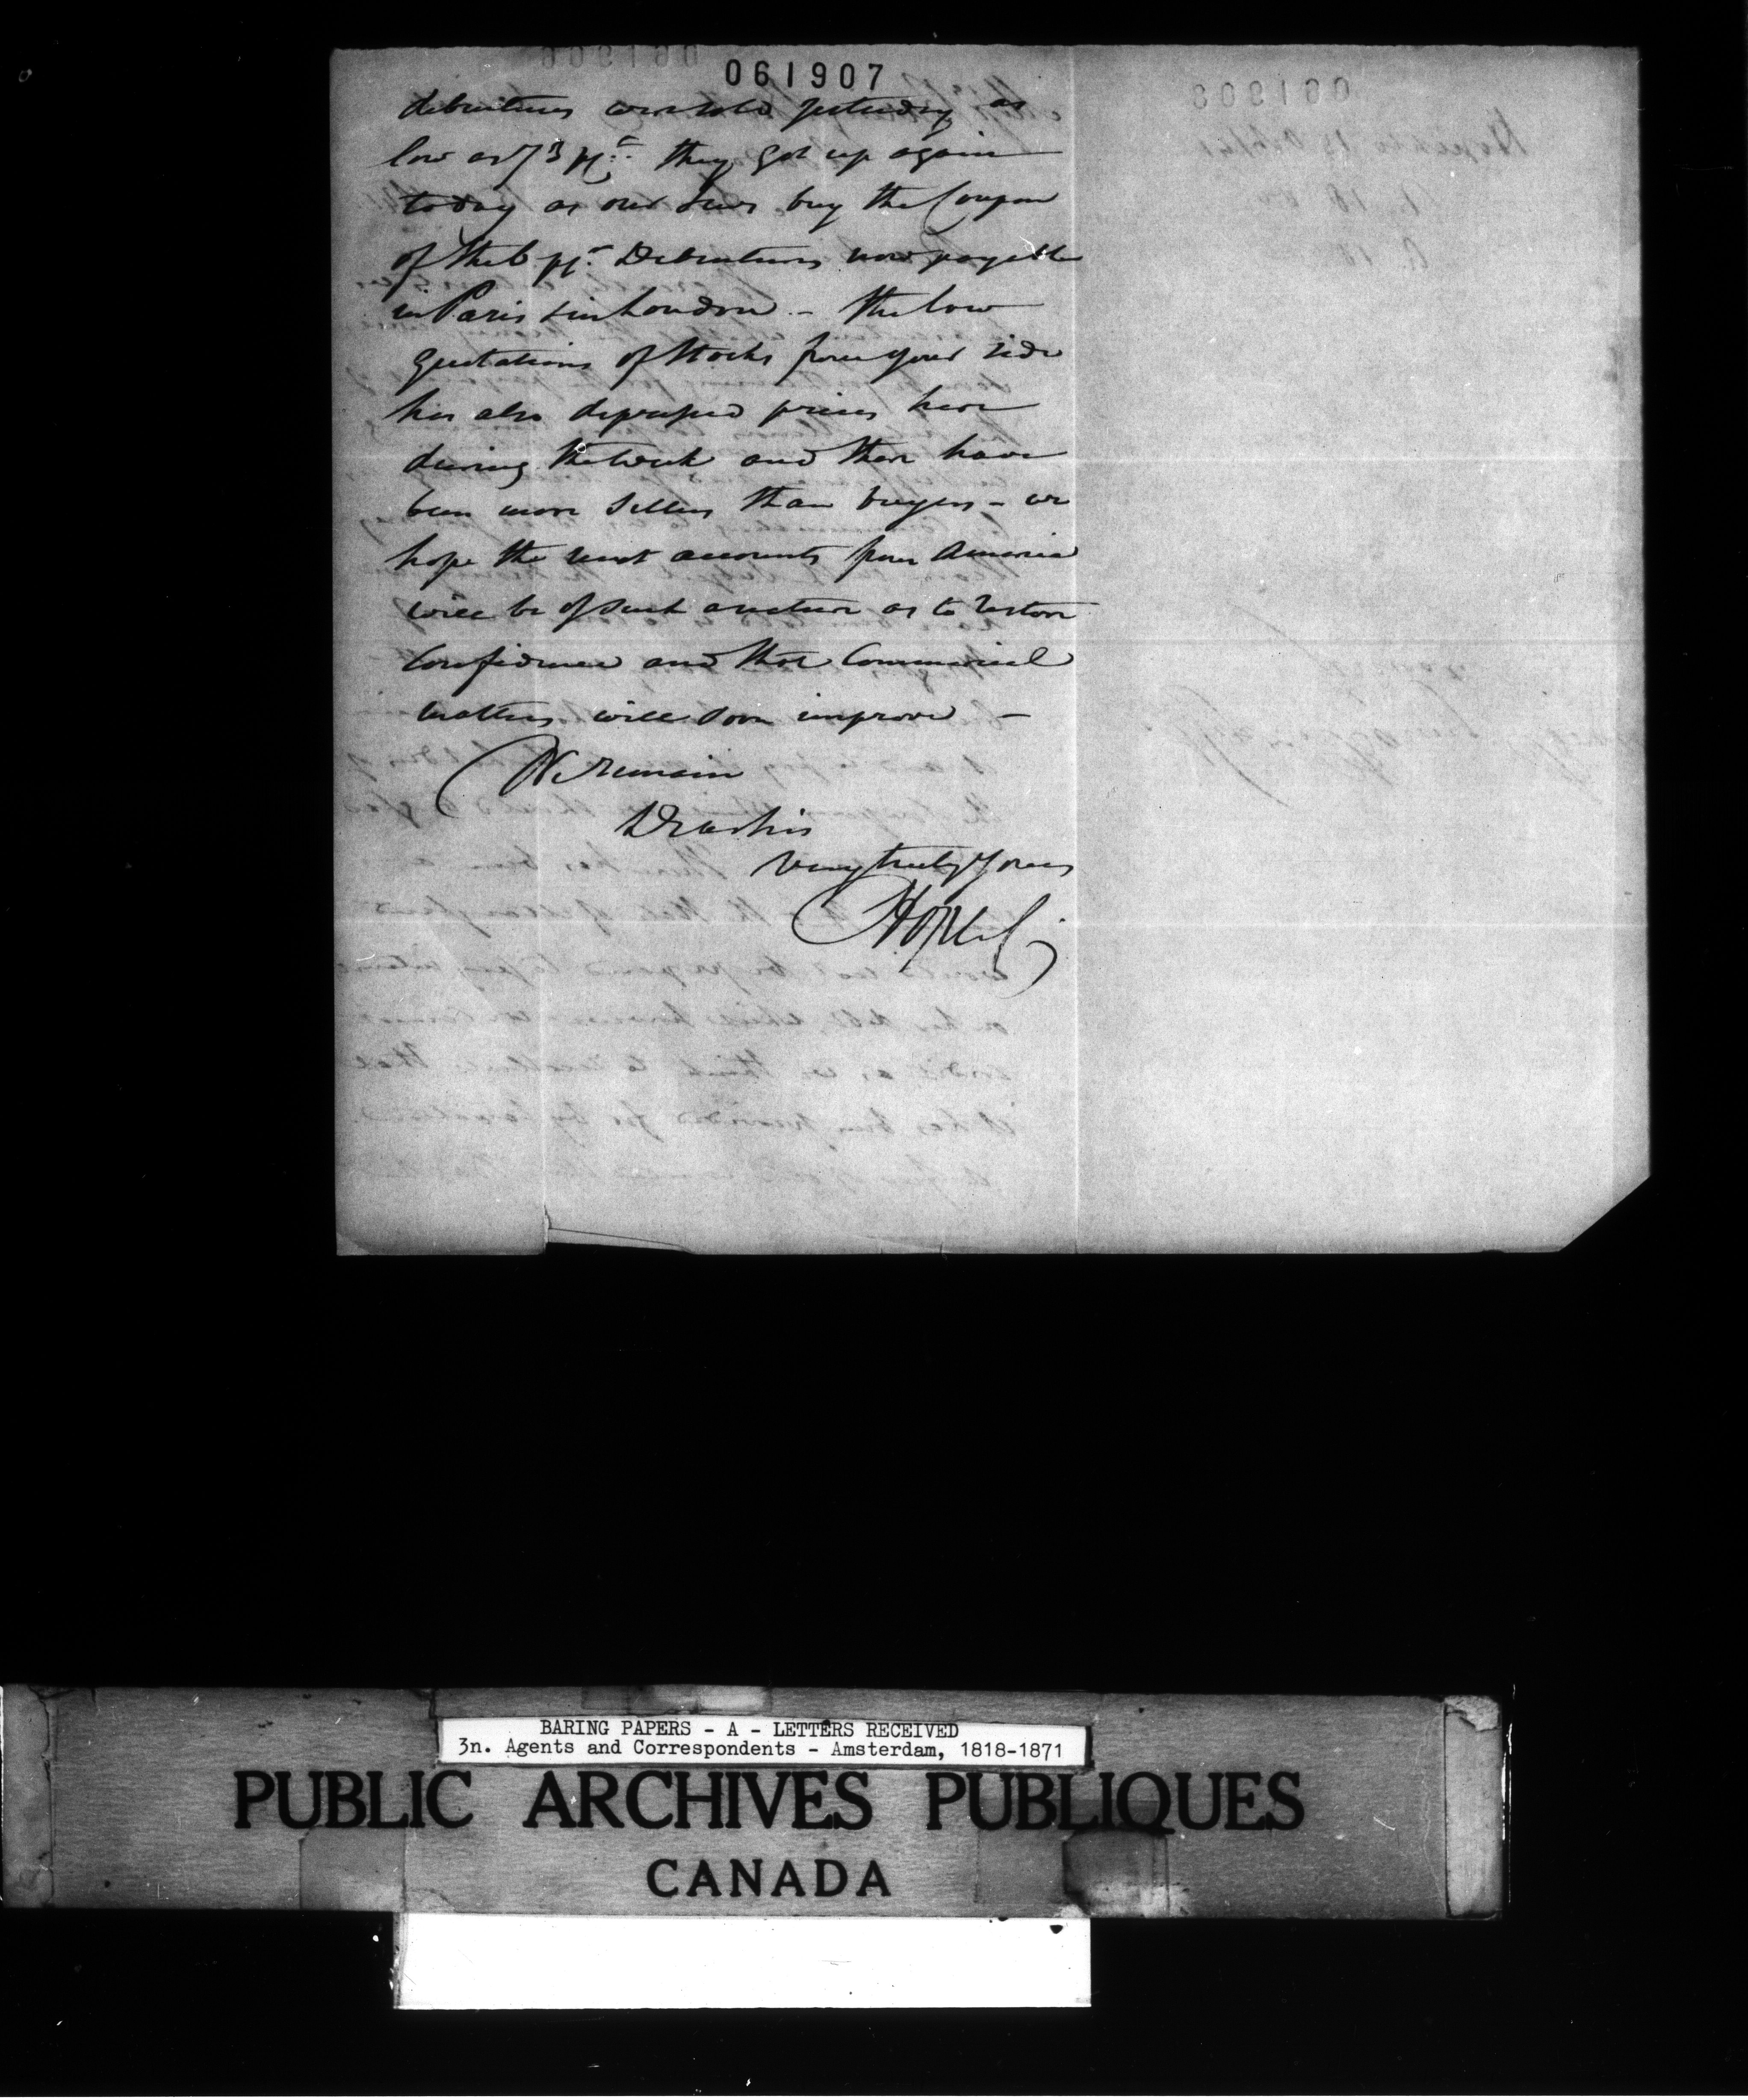 061907
debentures were sold yesterday as
low as 73 pct. they got up again
today as our Jews buy the Coupon
of the 6 pct. Debentures now payable
in Paris & in London - The low
quotations of Stocks from your side
has also depressed prices here
during the week and there have
been more sellers than buyers - we
hope the next accounts from America
will be of such a nature as to restore
Confidence and that Commercial
matters will soon improve -
We remain
Dear Sirs
Very truly Yours
Hope & C
BARING PAPERS - A - LETTERS RECEIVED
3n. Agents and Correspondents - Amsterdam, 1818-1871
PUBLIC ARCHIVES PUBLIQUES
CANADA